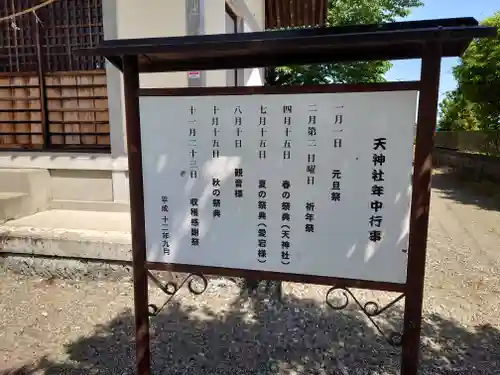 天神社年中行事
一月一日　元旦祭
二月第二日曜日　祈年祭
四月十五日　春の祭典（天神社）
七月十五日　夏の祭典（愛宕様）
八月十日　観音様
十月十五日　秋の祭典
十一月二十三日　収穫感謝祭
平成十二年九月